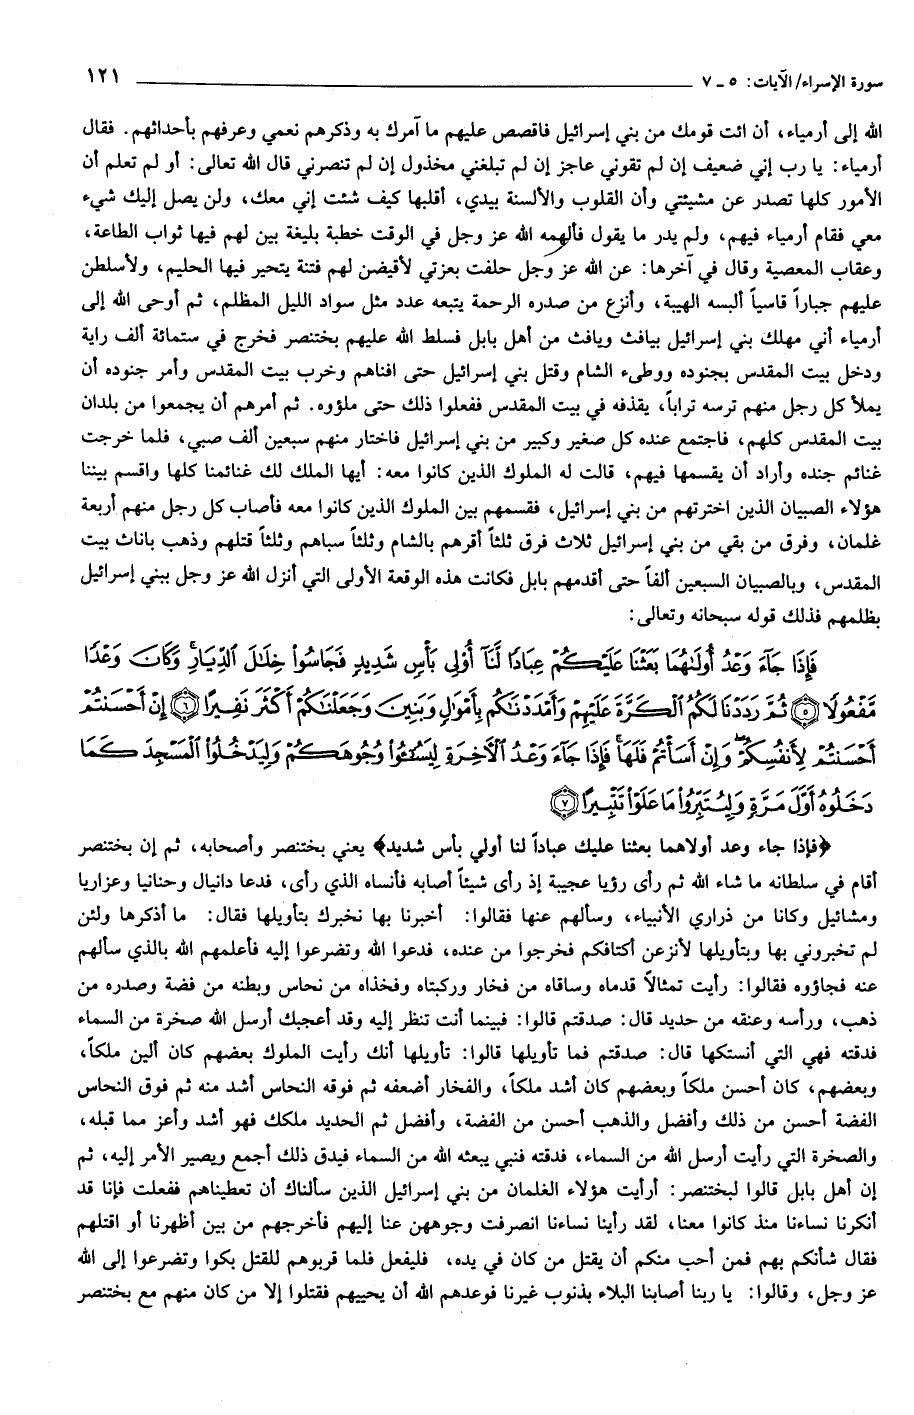 سورة الإسراء/ الآيات: ٥ ـ ٧ ١٢١
الله إلى أرمياء، أن ائت قومك من بني إسرائيل فاقصص عليهم ما آمرك به وذكرهم نعمي وعرفهم بأحداثهم. فقال
أرمياء: يا رب إني ضعيف إن لم تقوني عاجز إن لم تبلغني مخذول إن لم تنصرني قال الله تعالى: أو لم تعلم أن
الأمور كلها تصدر عن مشيئتي وأن القلوب والألسنة بيدي، أقلبها كيف شئت إني معك، ولن يصل إليك شيء
معي فقام أرمياء فيهم، ولم يدر ما يقول فألهمه الله عز وجل في الوقت خطبة بليغة بين لهم فيها ثواب الطاعة،
وعقاب المعصية وقال في آخرها: عن الله عز وجل حلفت بعزتي لأقيضن لهم فتنة يتحير فيها الحليم، ولأسلطن
عليهم جباراً قاسياً ألبسه الهيبة، وأنزع من صدره الرحمة يتبعه عدد مثل سواد الليل المظلم، ثم أوحى الله إلى
أرمياء أني مهلك بني إسرائيل بيافث ويافث من أهل بابل فسلط الله عليهم بختنصر فخرج في ستمائة ألف راية
ودخل بيت المقدس بجنوده ووطىء الشام وقتل بني إسرائيل حتى افناهم وخرب بيت المقدس وأمر جنوده أن
يملأ كل رجل منهم ترسه تراباً، يقذفه في بيت المقدس ففعلوا ذلك حتى ملؤوه. ثم أمرهم أن يجمعوا من بلدان
بيت المقدس كلهم، فاجتمع عنده كل صغير وكبير من بني إسرائيل فاختار منهم سبعين ألف صبي، فلما خرجت
غنائم جنده وأراد أن يقسمها فيهم، قالت له الملوك الذين كانوا معه: أيها الملك لك غنائمنا كلها واقسم بيننا
هؤلاء الصبيان الذين اخترتهم من بني إسرائيل، فقسمهم بين الملوك الذين كانوا معه فأصاب كل رجل منهم أربعة
غلمان، وفرق من بقي من بني إسرائيل ثلاث فرق ثلثاً أقرهم بالشام وثلثاً سباهم وثلثاً قتلهم وذهب باناث بيت
المقدس، وبالصبيان السبعين ألفاً حتى أقدمهم بابل فكانت هذه الوقعة الأولى التي أنزل الله عز وجل ببني إسرائيل
بظلمهم فذلك قوله سبحانه وتعالى:
فَإِذَا جَآءَ وَعْدُ أُولَىٰهُمَا بَعَثْنَا عَلَيْكُمْ عِبَادًا لَّنَآ أُوْلِى بَأْسٍ شَدِيدٍ فَجَاسُواْ خِلَٰلَ ٱلدِّيَارِ ۚ وَكَانَ وَعْدًا
مَّفْعُولًا ۝٥ ثُمَّ رَدَدْنَا لَكُمُ ٱلْكَرَّةَ عَلَيْهِمْ وَأَمْدَدْنَٰكُم بِأَمْوَٰلٍ وَبَنِينَ وَجَعَلْنَٰكُمْ أَكْثَرَ نَفِيرًا ۝٦ إِنْ أَحْسَنتُمْ
أَحْسَنتُمْ لِأَنفُسِكُمْ ۖ وَإِنْ أَسَأْتُمْ فَلَهَا ۚ فَإِذَا جَآءَ وَعْدُ ٱلْأَخِرَةِ لِيَسُـُٔواْ وُجُوهَكُمْ وَلِيَدْخُلُواْ ٱلْمَسْجِدَ كَمَا
دَخَلُوهُ أَوَّلَ مَرَّةٍ وَلِيُتَبِّرُواْ مَا عَلَوْاْ تَتْبِيرًا ۝٧
﴿فإذا جاء وعد أولاهما بعثنا عليك عباداً لنا أولي بأس شديد﴾ يعني بختنصر وأصحابه، ثم إن بختنصر
أقام في سلطانه ما شاء الله ثم رأى رؤيا عجيبة إذ رأى شيئاً أصابه فأنساه الذي رأى، فدعا دانيال وحنانيا وعزاريا
ومشائيل وكانا من ذراري الأنبياء، وسألهم عنها فقالوا: أخبرنا بها نخبرك بتأويلها فقال: ما أذكرها ولئن
لم تخبروني بها وبتأويلها لأنزعن أكتافكم فخرجوا من عنده، فدعوا الله وتضرعوا إليه فأعلمهم الله بالذي سألهم
عنه فجاؤوه فقالوا: رأيت تمثالاً قدماه وساقاه من فخار وركبتاه وفخذاه من نحاس وبطنه من فضة وصدره من
ذهب، ورأسه وعنقه من حديد قال: صدقتم قالوا: فبينما أنت تنظر إليه وقد أعجبك أرسل الله صخرة من السماء
فدقته فهي التي أنستكها قال: صدقتم فما تأويلها قالوا: تأويلها أنك رأيت الملوك بعضهم كان ألين ملكاً،
وبعضهم، كان أحسن ملكاً وبعضهم كان أشد ملكاً، والفخار أضعفه ثم فوقه النحاس أشد منه ثم فوق النحاس
الفضة أحسن من ذلك وأفضل والذهب أحسن من الفضة، وأفضل ثم الحديد ملكك فهو أشد وأعز مما قبله،
والصخرة التي رأيت أرسل الله من السماء، فدقته فنبي يبعثه الله من السماء فيدق ذلك أجمع ويصير الأمر إليه، ثم
إن أهل بابل قالوا لبختنصر: أرأيت هؤلاء الغلمان من بني إسرائيل الذين سألناك أن تعطيناهم ففعلت فإنا قد
أنكرنا نساءنا منذ كانوا معنا، لقد رأينا نساءنا انصرفت وجوههن عنا إليهم فأخرجهم من بين أظهرنا أو اقتلهم
فقال شأنكم بهم فمن أحب منكم أن يقتل من كان في يده، فليفعل فلما قربوهم للقتل بكوا وتضرعوا إلى الله
عز وجل، وقالوا: يا ربنا أصابنا البلاء بذنوب غيرنا فوعدهم الله أن يحييهم فقتلوا إلا من كان منهم مع بختنصر